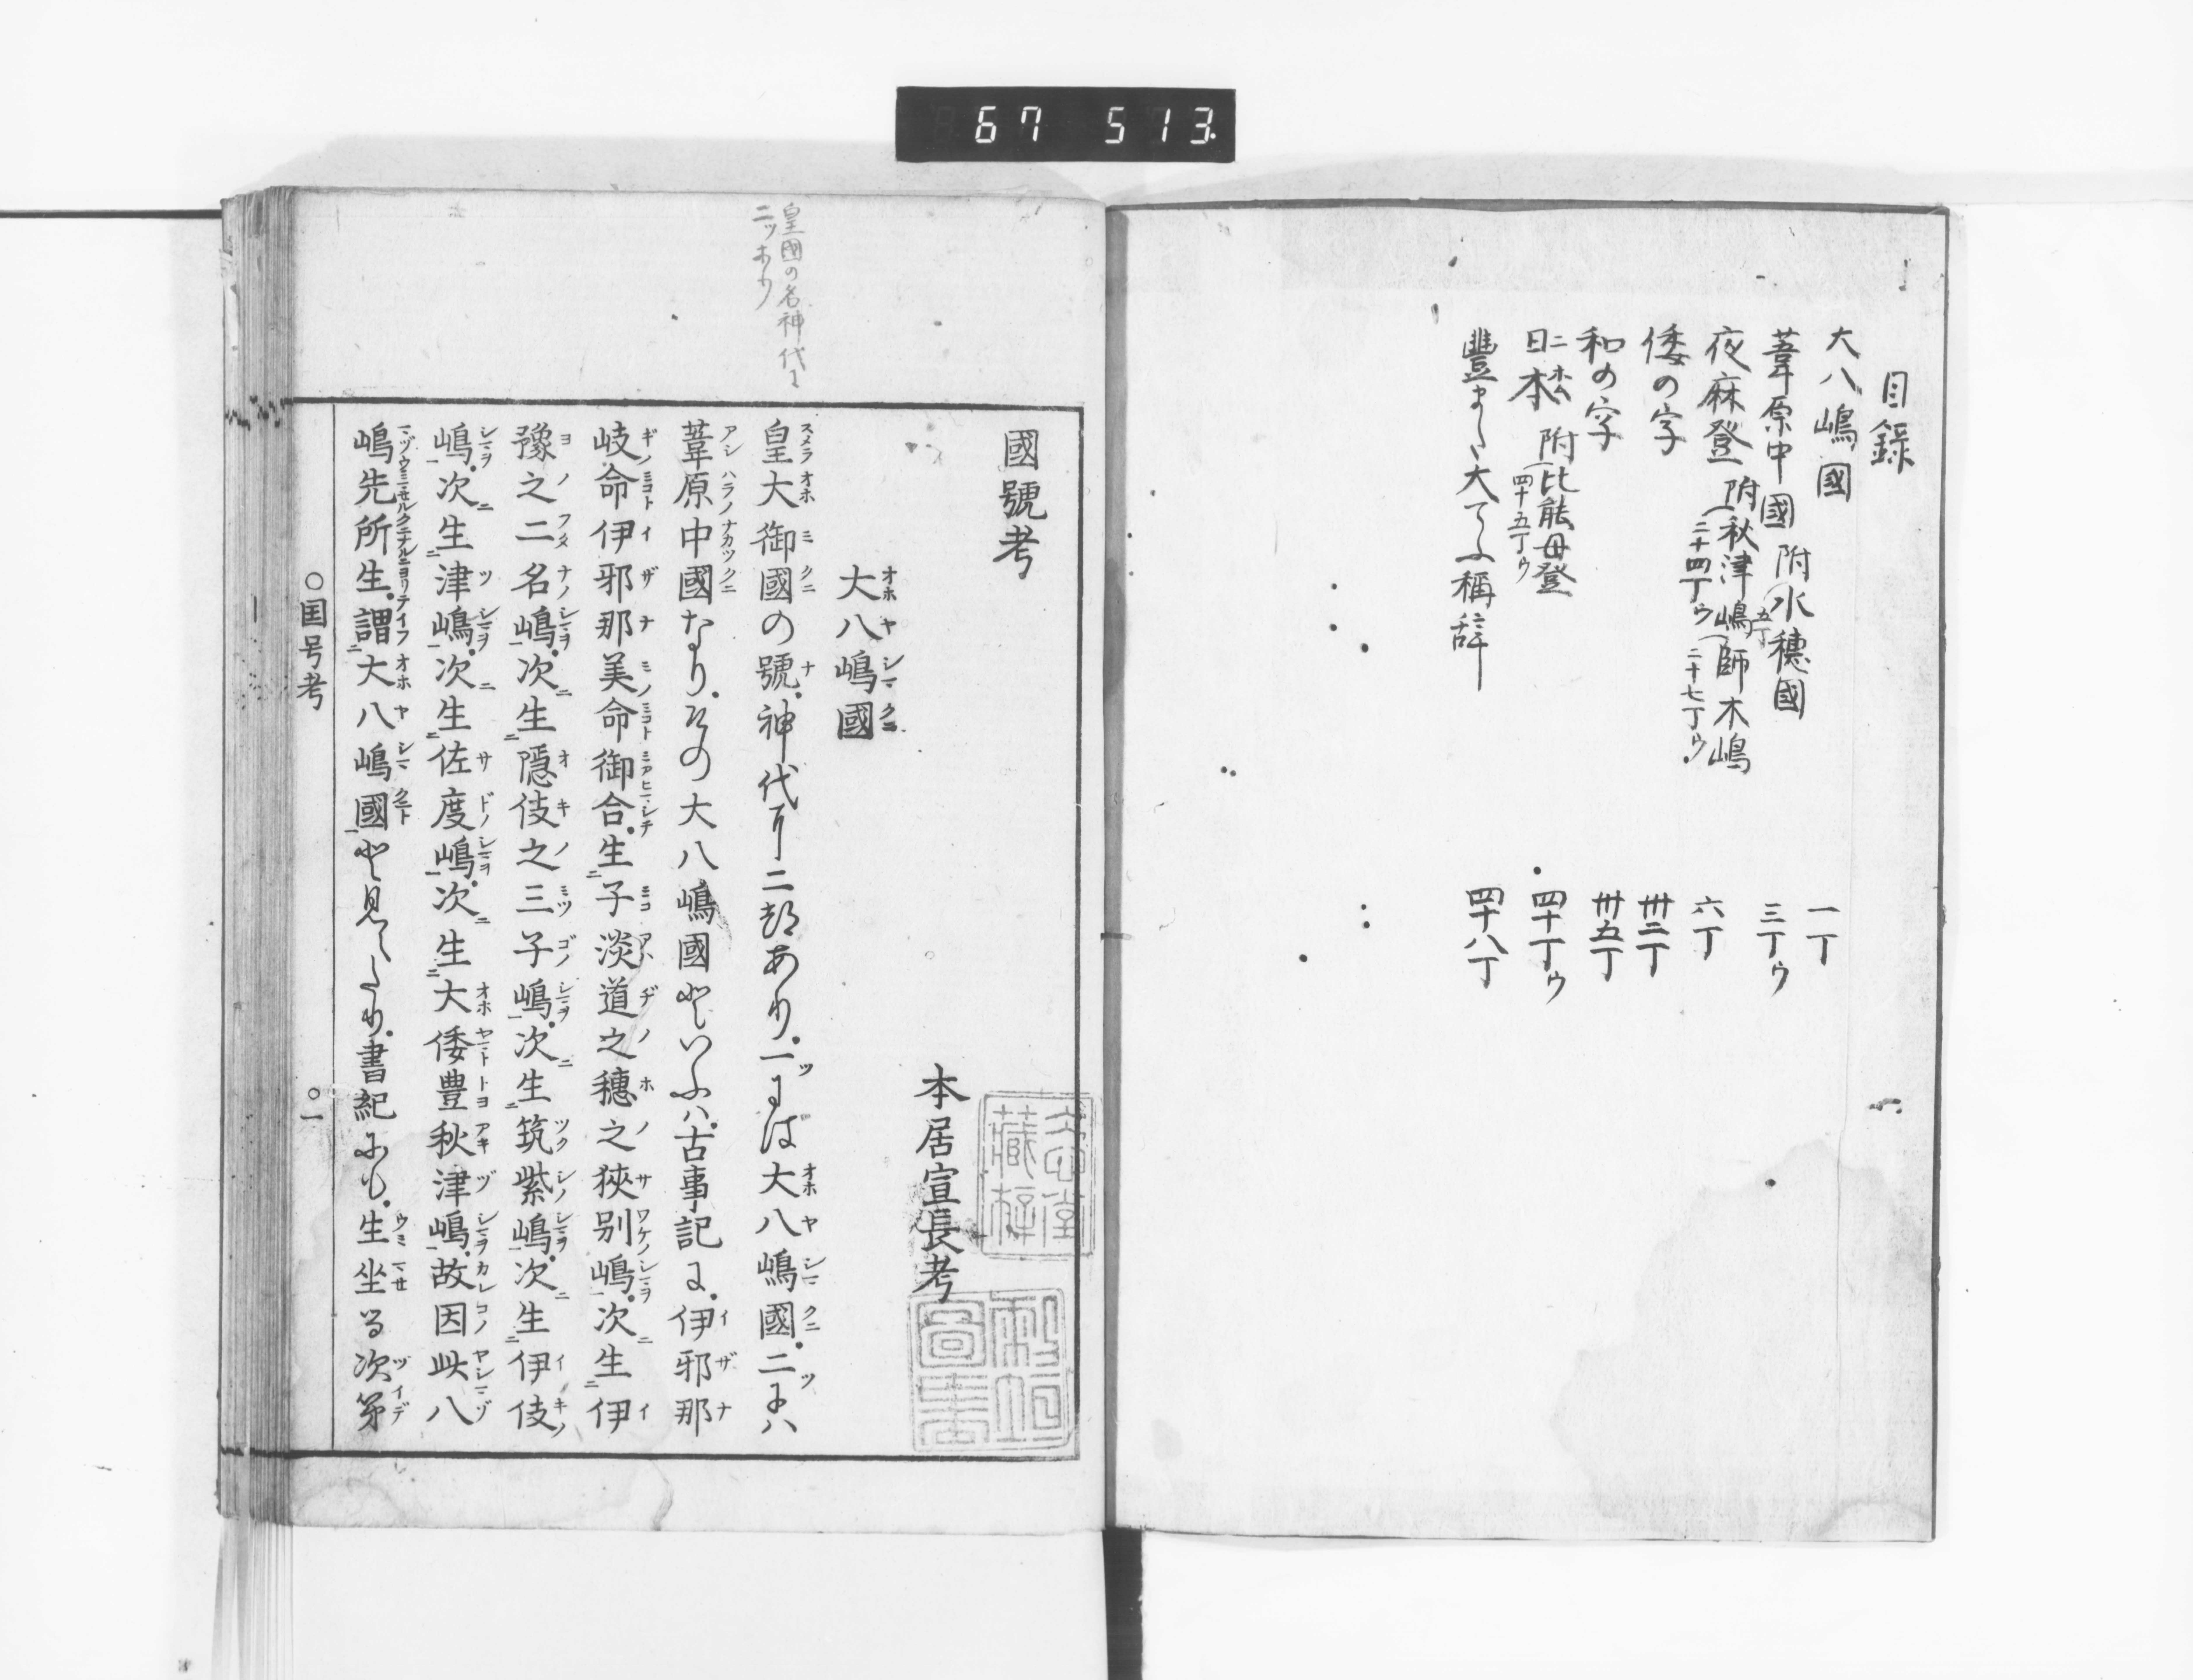 67 513
目録
大八嶋國 一丁
葦原中國 附水穗國 五丁 三丁ウ
夜麻登 附秋津嶋 二十四丁ウ 師木嶋 二十七丁ウ 六丁
倭の字 卅二丁
和の字 卅五丁
日本 ニホム 附比能母登 四十五丁ウ 四十丁ウ
豐また大てふ稱辭 四十八丁
皇國の名神代に
二ツあり
國號考
本居宣長考
大八嶋國
皇大御國の號。神代に二つあり。一には大八嶋國。二には
葦原中國なり。その大八嶋國といふは。古事記に。伊邪那
岐命伊邪那美命御合。生子淡道之穗之狹別嶋。次生伊
豫之二名嶋。次生隱伎之三子嶋。次生筑紫嶋。次生伊伎
嶋。次生津嶋。次生佐度嶋。次生大倭豊秋津嶋。故因此八
嶋先所生。謂大八嶋國と見えたり。書紀にも。生坐る次第
○国号考 ○一